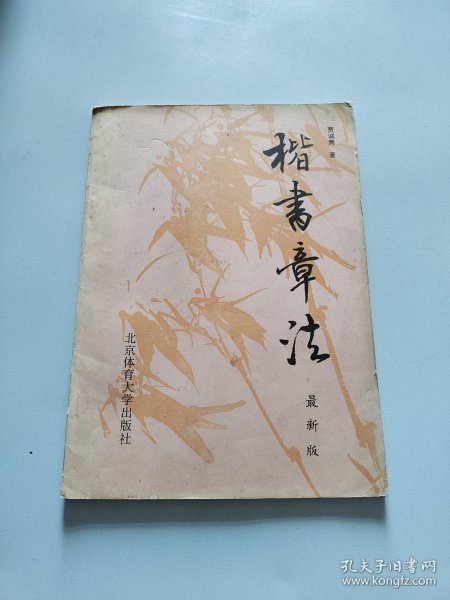 楷书章法
著
最新版
北京体育大学出版社
孔夫子旧书网
www.kongfz.com